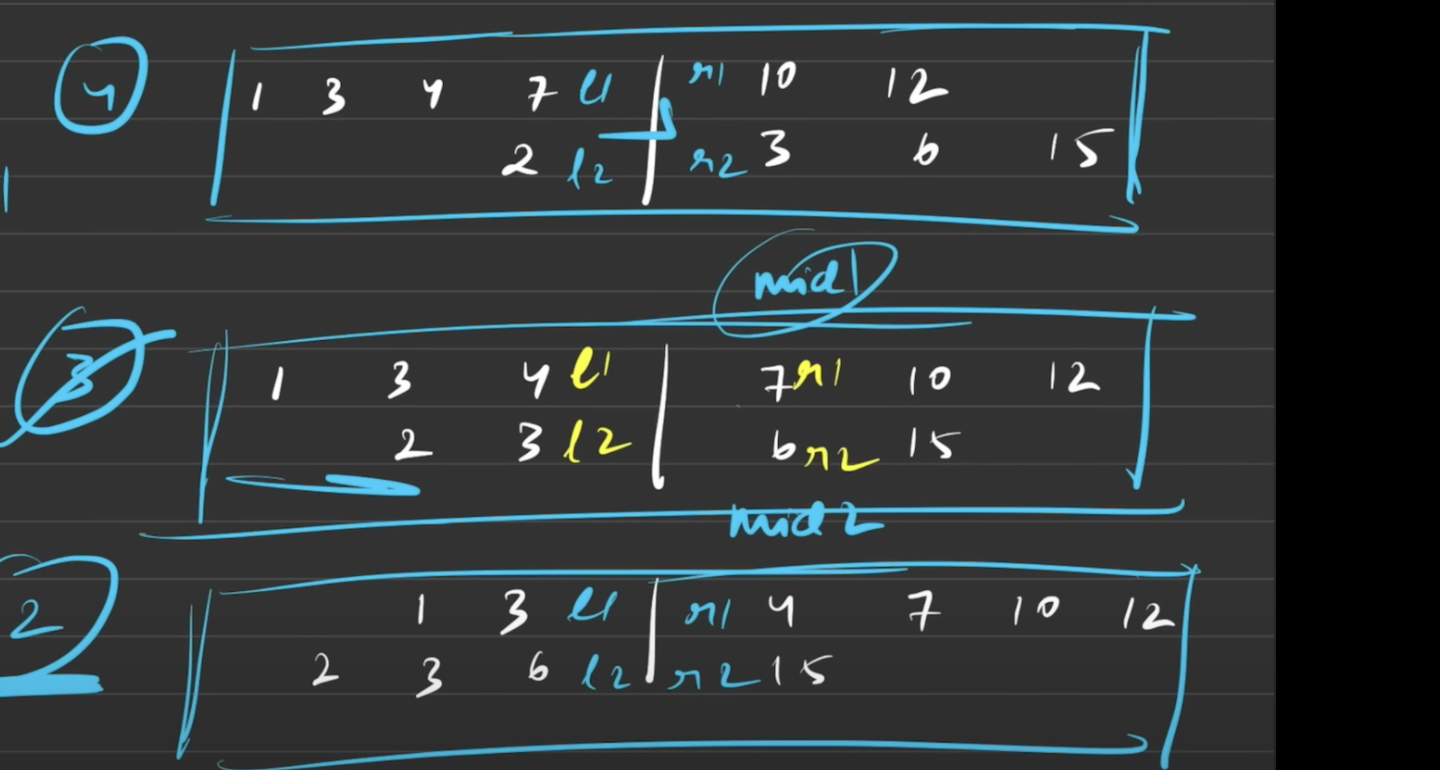 4
1 3 4 7 l1 | r1 10 12
2 l2 | r2 3 6 15
mid1
3
1 3 4 l1 | 7 r1 10 12
2 3 l2 | 6 r2 15
mid2
2
1 3 l1 | r1 4 7 10 12
2 3 6 l2 | r2 15